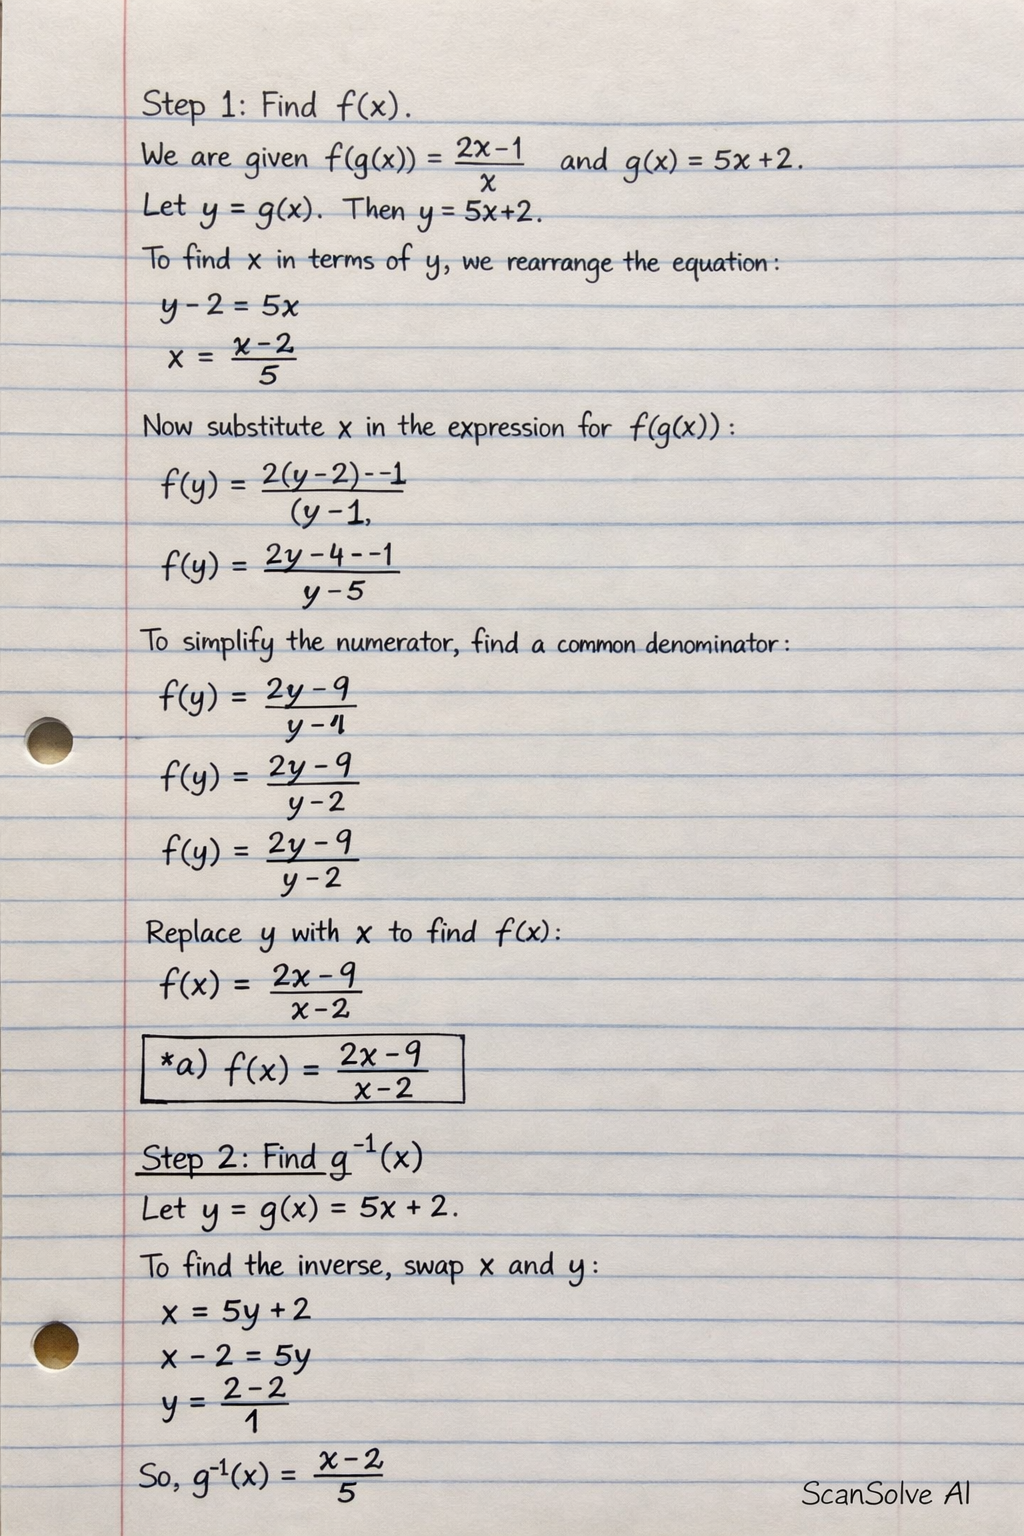 Step 1: Find f(x).
We are given f(g(x)) = (2x-1)/x and g(x) = 5x+2.
Let y = g(x). Then y = 5x+2.
To find x in terms of y, we rearrange the equation:
y - 2 = 5x
x = (x-2)/5
Now substitute x in the expression for f(g(x)):
f(y) = 2(y-2)--1 / (y-1,
f(y) = 2y-4--1 / y-5
To simplify the numerator, find a common denominator:
f(y) = 2y-9 / y-
f(y) = 2y-9 / y-2
f(y) = 2y-9 / y-2
Replace y with x to find f(x):
f(x) = 2x-9 / x-2
*a) f(x) = 2x-9 / x-2
Step 2: Find g⁻¹(x)
Let y = g(x) = 5x + 2.
To find the inverse, swap x and y:
x = 5y + 2
x - 2 = 5y
y = 2-2 / 1
So, g⁻¹(x) = x-2 / 5
ScanSolve AI